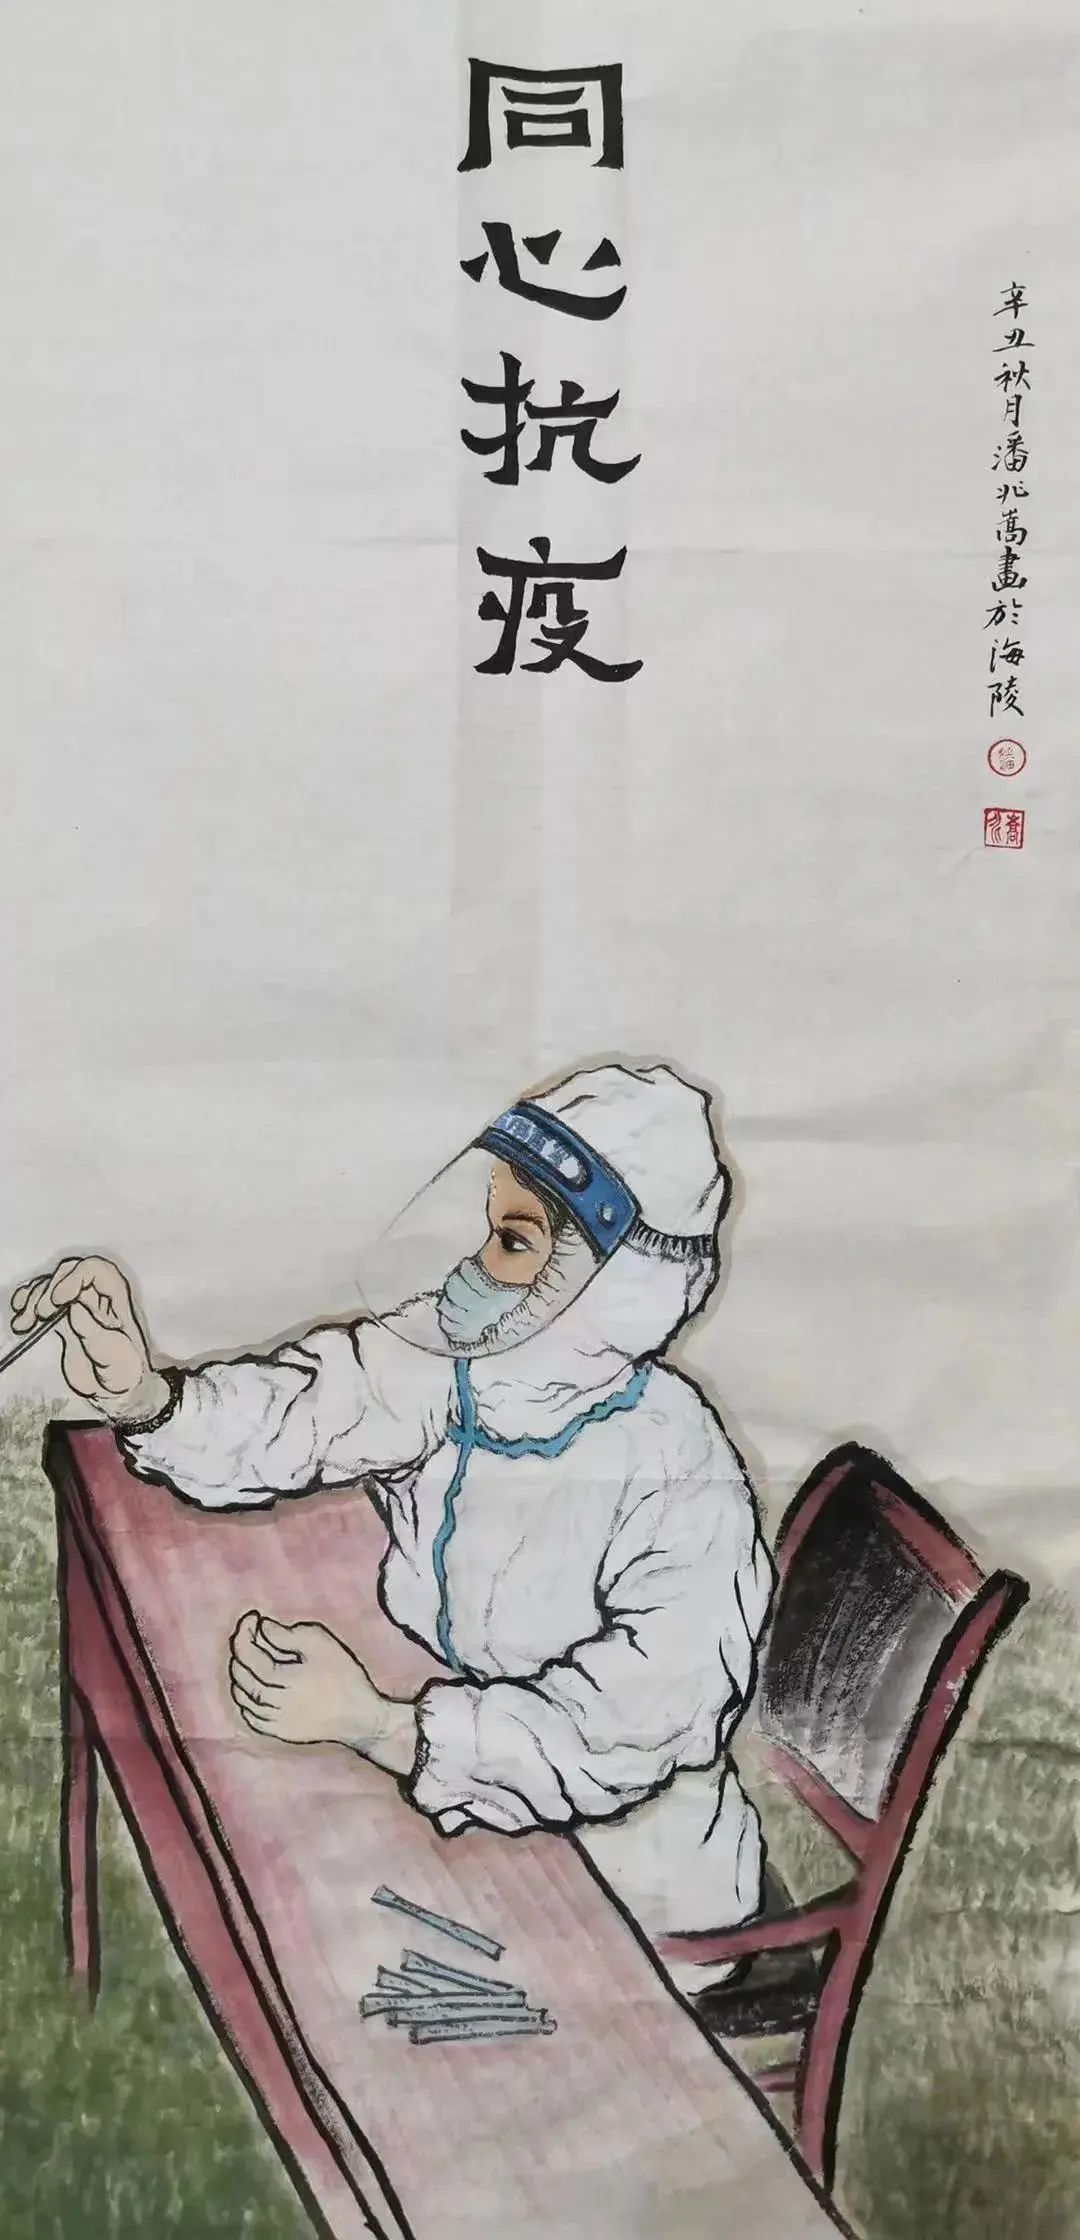 同心抗疫
辛丑秋月潘兆嵩畫於海陵